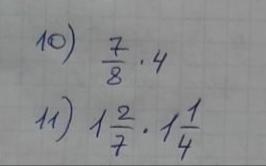 10) 7/8 · 4
11) 1 2/7 · 1 1/4